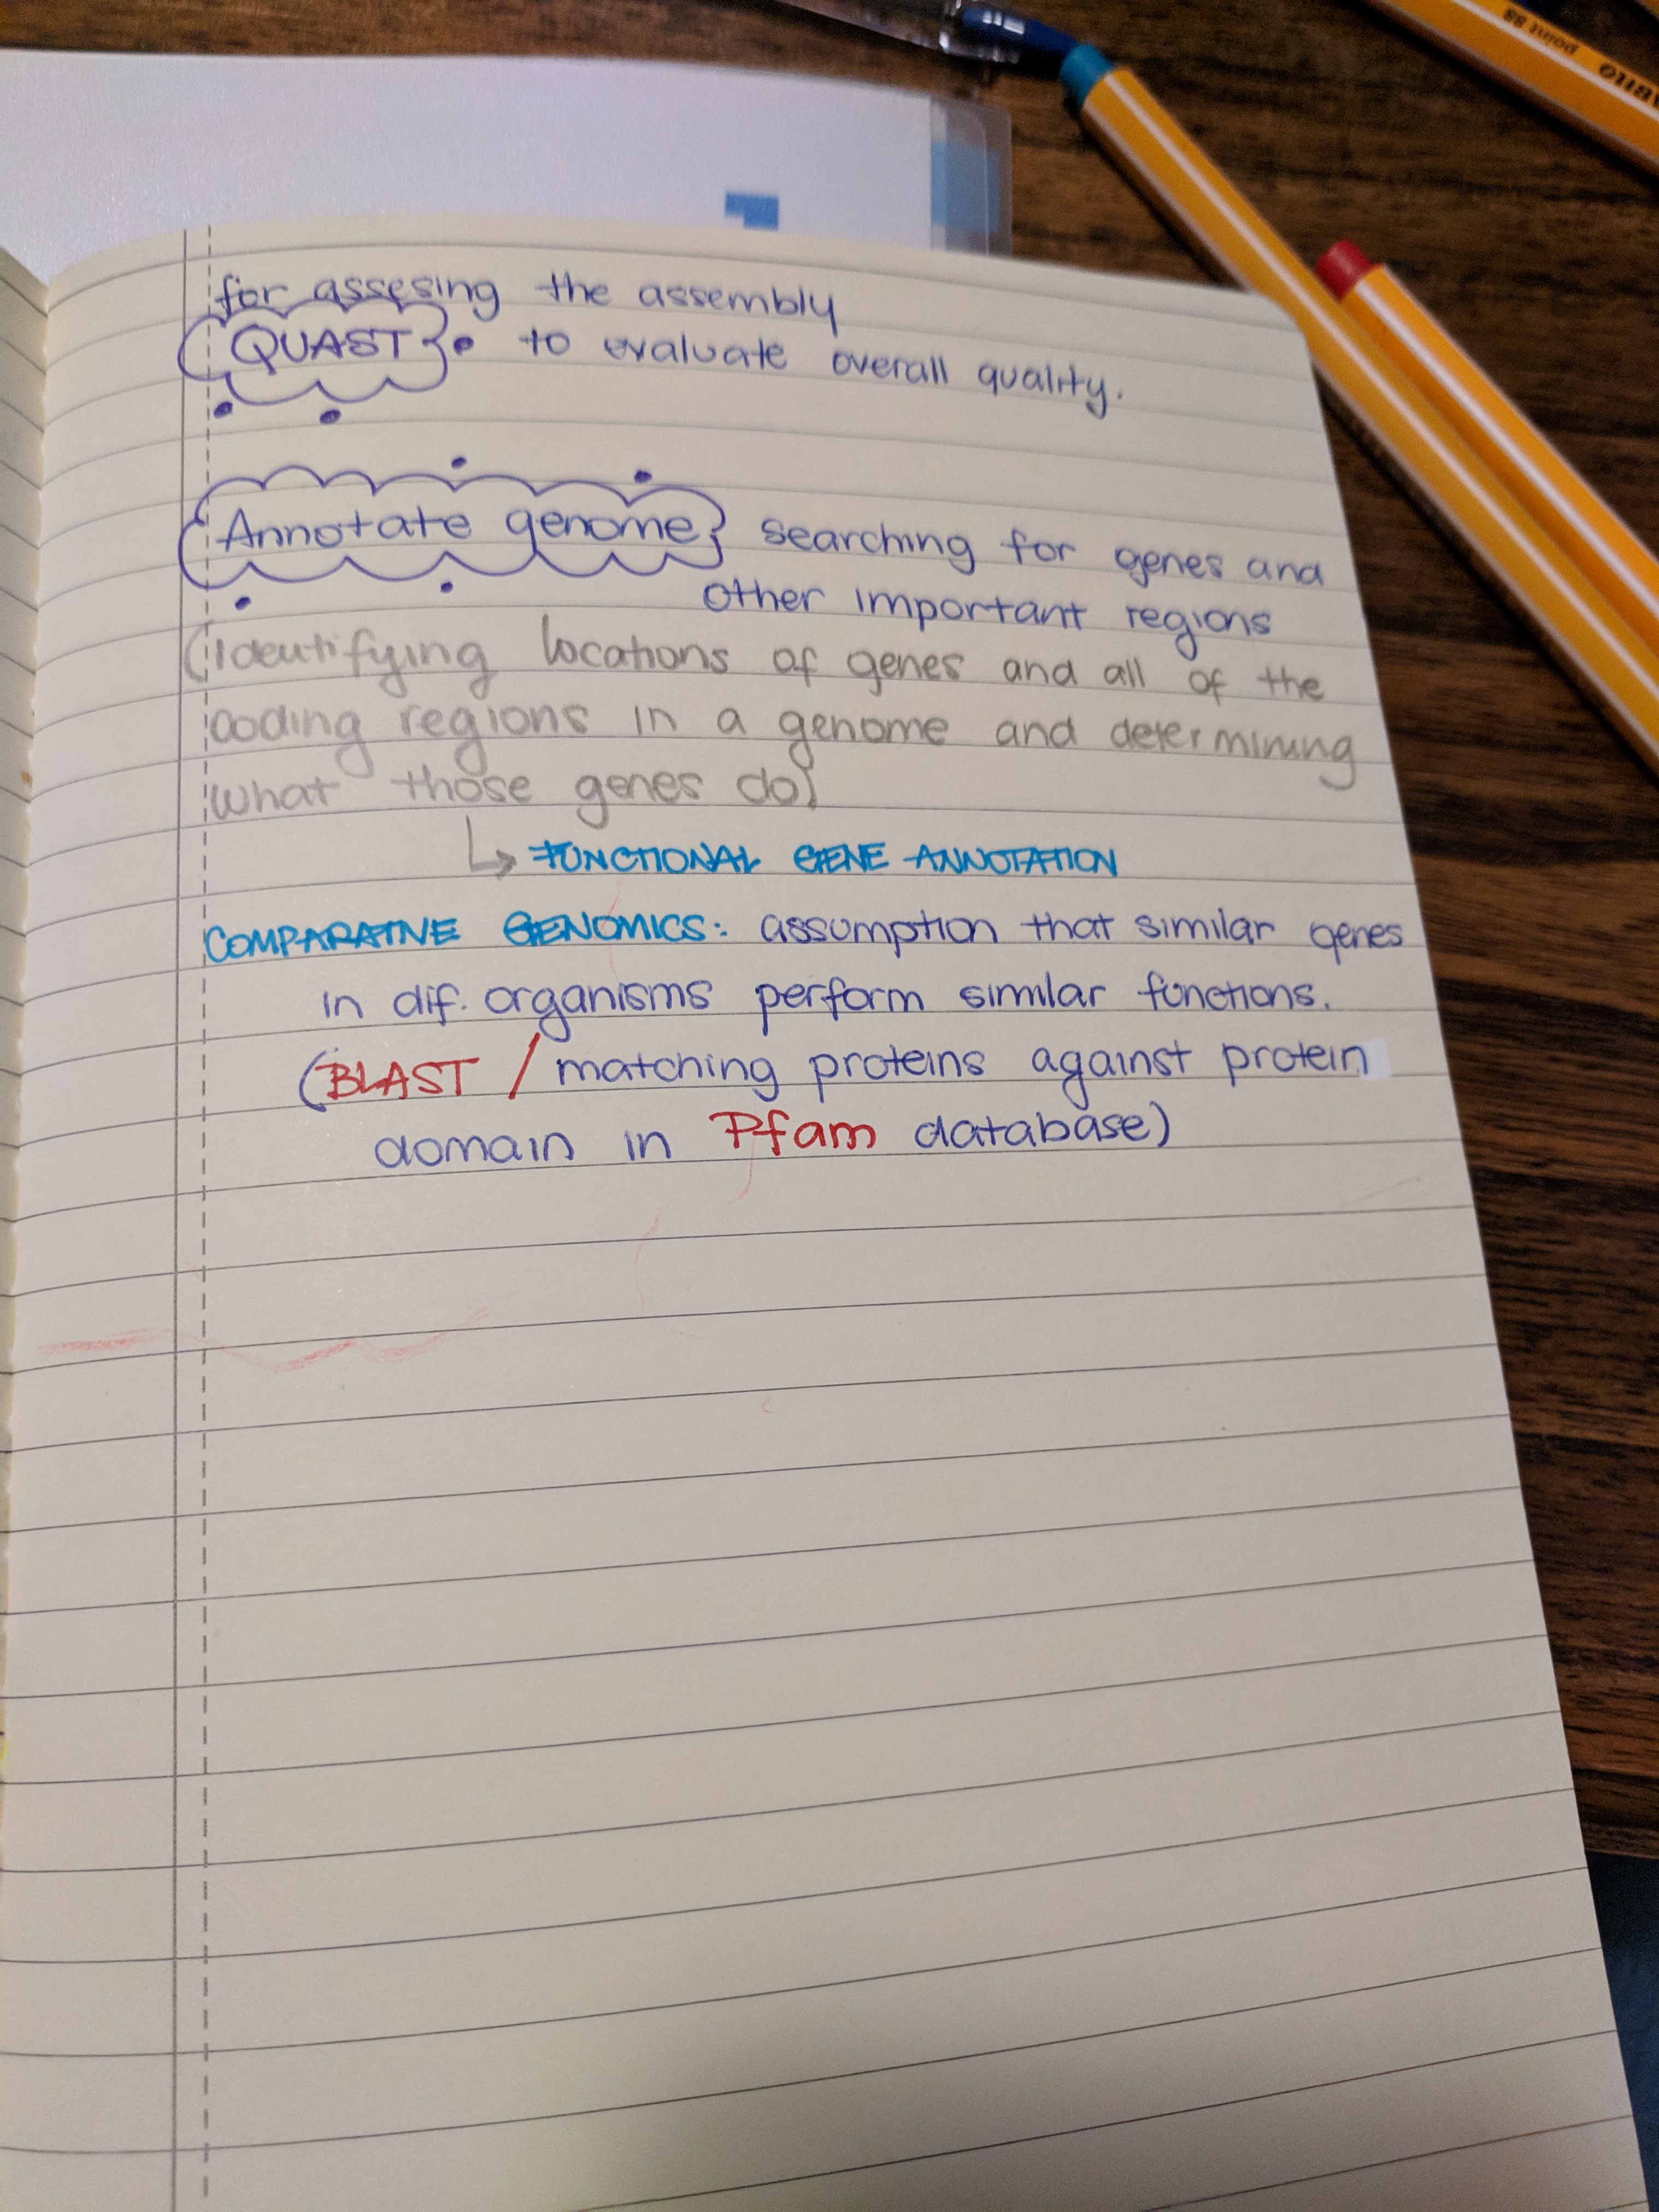 for assesing the assembly
QUAST to evaluate overall quality.
Annotate genome searching for genes and
other important regions
(Identifying locations of genes and all of the
coding regions in a genome and determining
what those genes do)
↳ FUNCTIONAL GENE ANNOTATION
COMPARATIVE GENOMICS: assumption that similar genes
in dif. organisms perform similar functions.
(BLAST / matching proteins against protein
domain in Pfam database)
point 88